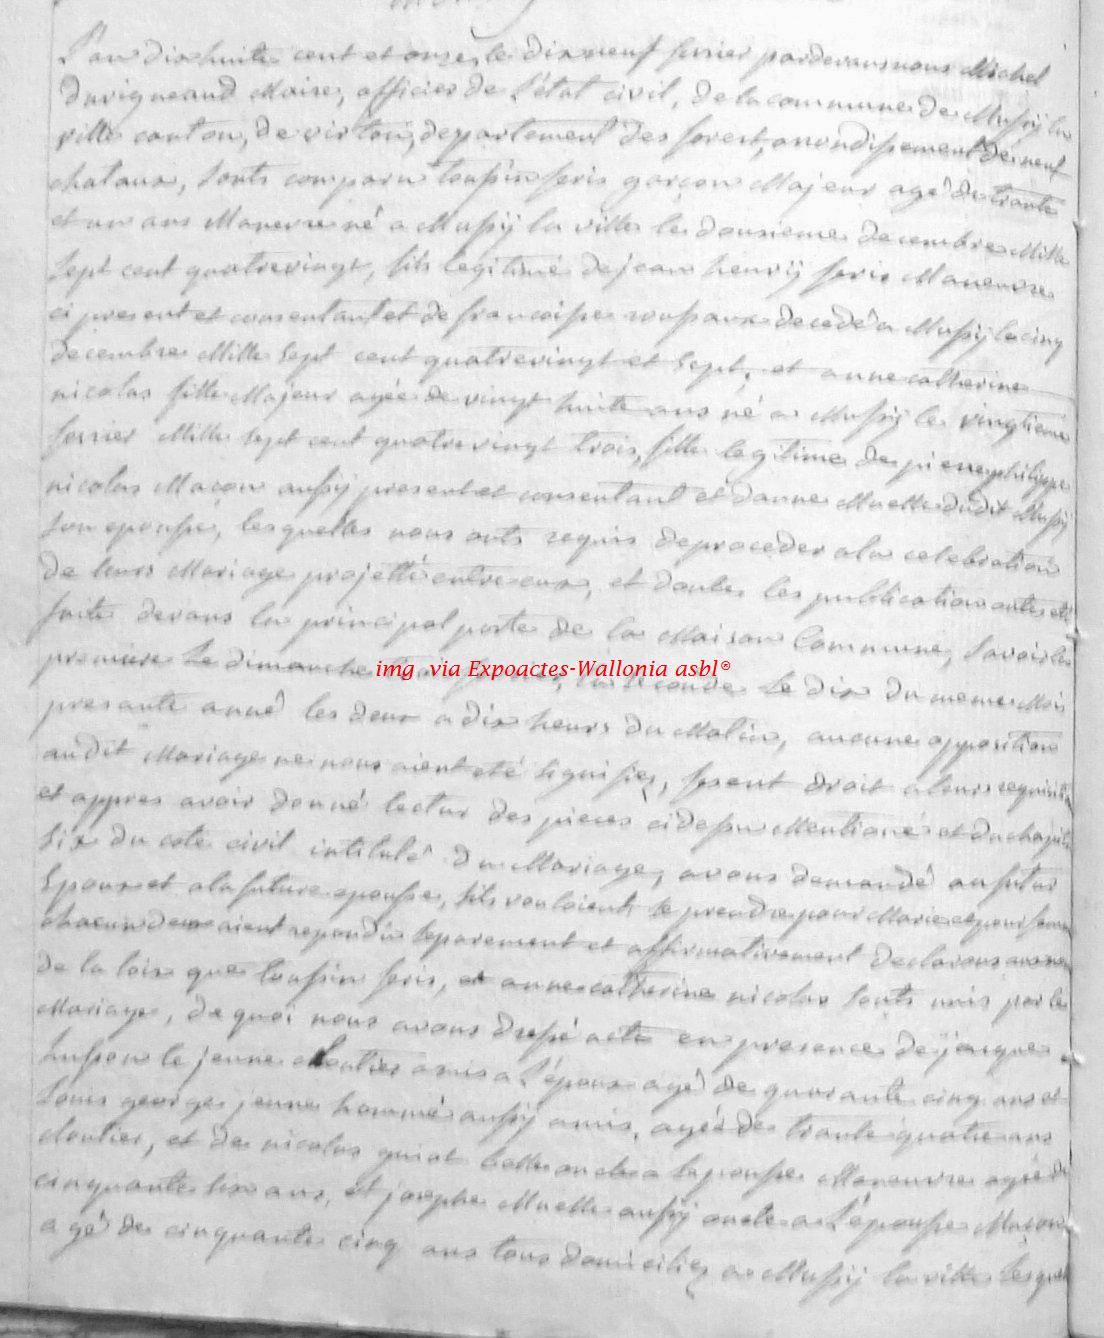 L'an dix huite cent et onze, le dix neuf fevrier pardevans nous Michel
Duvigneaud Maire, officier de L'état civil, de la commune de Mussÿ la
ville canton, de virton, departement des forest, arrondissement de neuf
chataux, sonts comparu toussin feris garçon Majeur agé de trante
et un ans Maneuvre né a Mussÿ la ville le dousieme decembre Mille
sept cent quatrevingt, fils legitime de jean henrÿ feris Maneuvre
ci present et consentant et de francoisse roussaux decedé a Mussÿ le cinq
decembre Mille sept cent quatrevingt et sept, et anne catherine
nicolas fille Majeur agée de vingt huite ans né a Mussÿ le vingtieme
fevrier Mille sept cent quatrevingt trois, fille legitime de pierre philippe
nicolas Macon aussÿ present et consentant et danne Muelle dudit Mussÿ
son epousse, lesquelles nous onts requis de proceder a la celebration
de leurs Mariage projetté entre eux, et donts les publication onts eté
faite devans la principal porte de la Maison Commune, savoir la
premiere Le dimanche fevrier, la seconde Le dix du meme Mois
presante anné les deux a dix heurs du Matin, aucune opposition
audit Mariage ne nous aient eté signifiez, fesant droit a leurs requisition
et appres avoir donné lectur des pieces cidessu Mentioné et du chapitre
six du code civil intitulé du Mariage, avons demandé au futur
Epoux et a la future epousse, s'ils vouloient se prendre pour Marie et pour femme
chacun deux aient repondu separement et affirmativement declarons au nom
de la loix que toussin feris, et anne catherine nicolas sonts unis par le
Mariage, de quoi nous avons dressé acte en presence de jacque
husson le jeune Cloutier amis a L'époux agé de quarante cinq ans et
Louis george jeune hommé aussÿ amis, agé de trante quatre ans
cloutier, et de nicolas guiot belle oncle a lepousse Maneuvre agée de
cinquante six ans, et josephe Muelle aussÿ oncle a L'épousse Macon
agé de cinquante cinq ans tous domiciliez a Mussÿ la ville Lesquel
img via Expoactes-Wallonia asbl®